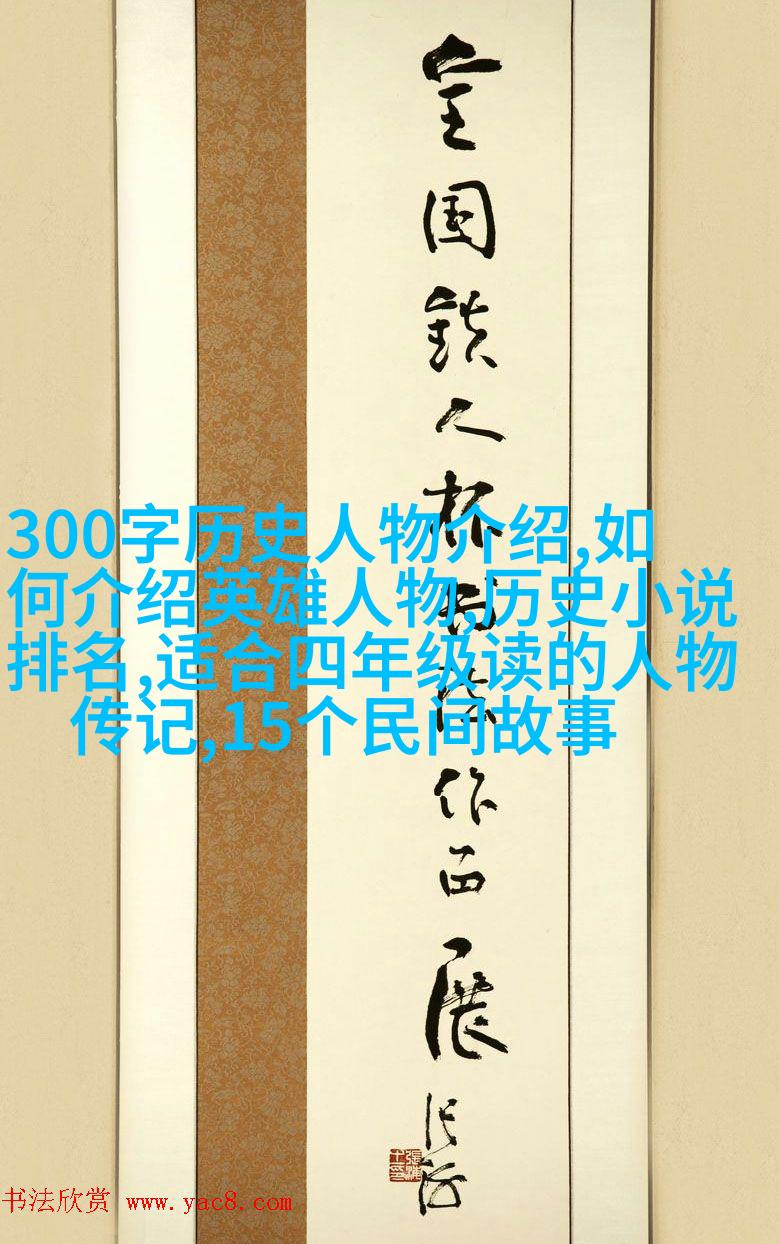 全国铁人杯书法作品展
300字历史人物介绍,如
何介绍英雄人物,历史小说
排名,适合四年级读的人物
传记,15个民间故事
书法欣赏 www.yac8.com